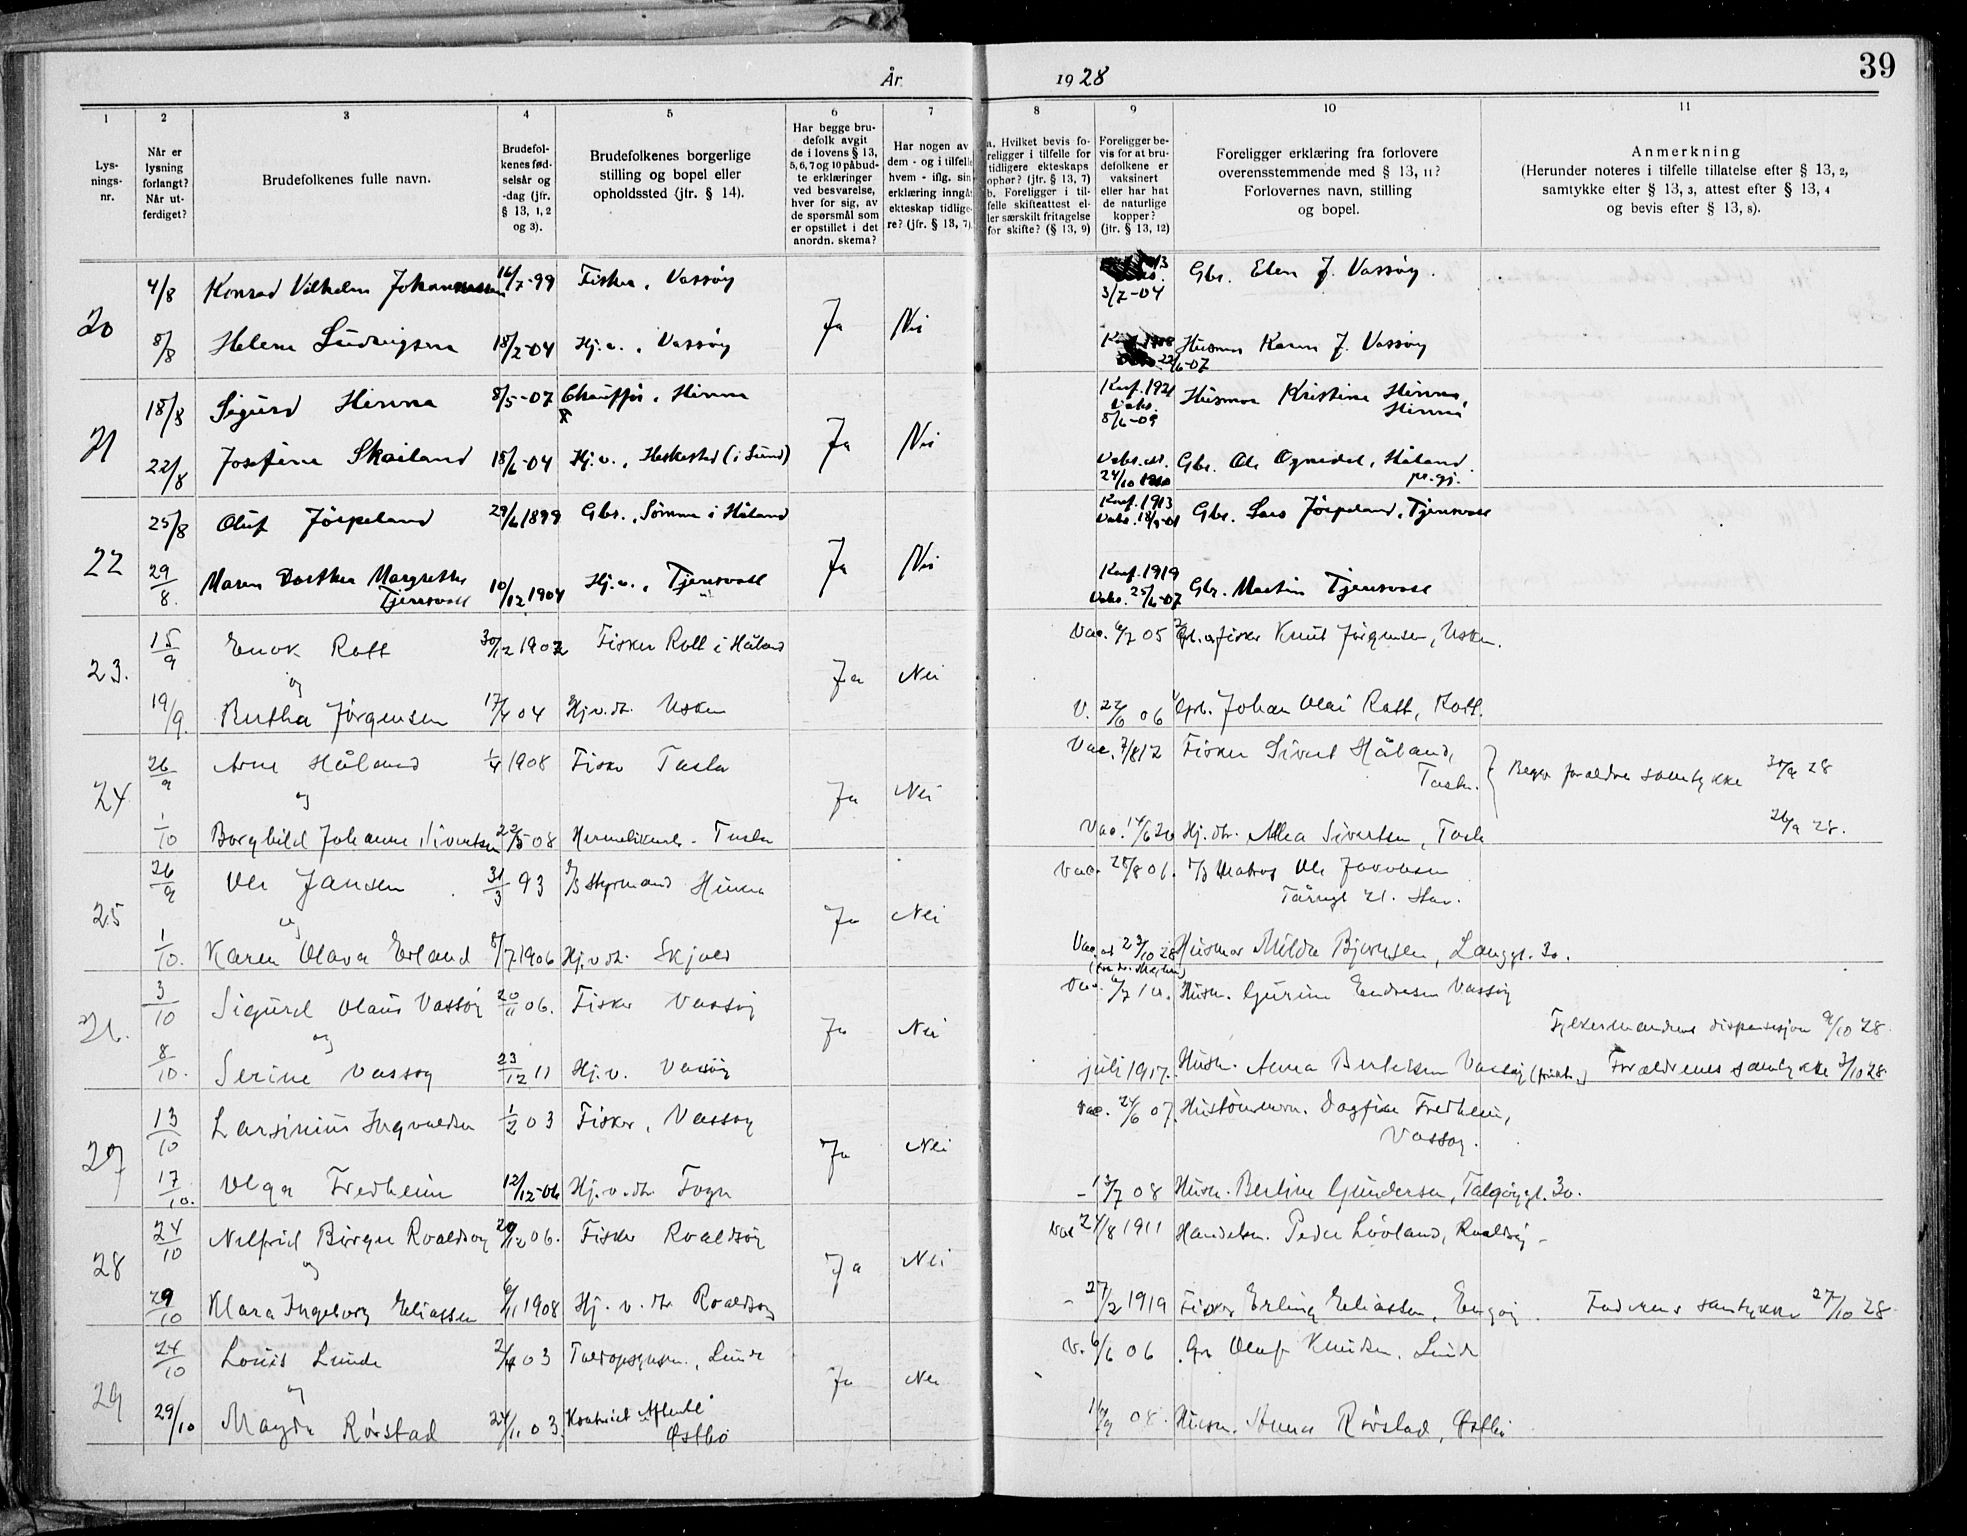 År 1928
39
1
2
3
4
5
6
7
8
9
10
11
Lys-
nings-
nr.
Når er
lysning
forlangt?
Når ut-
ferdiget?
Brudefolkenes fulle navn.
Brudefol-
kenes fød-
selsår og
-dag (jfr.
§ 13, 1, 2
og 3).
Brudefolkenes borgerlige
stilling og bopel eller
opholdssted (jfr. § 14).
Har begge bru-
defolk avgit
de i lovens § 13,
5, 6, 7 og 10 påbud-
te erklæringer
ved besvarelse,
hver for sig, av
de spørsmål som
er opstillet i det
anordn. skema?
Har nogen av
dem - og i tilfelle
hvem - iflg. sin
erklæring inngåt
ekteskap tidlige-
re? (jfr. § 13, 7)
a. Hvilket bevis fo-
religger i tilfelle for
tidligere ekteskaps
ophør? (jfr. § 13, 7)
b. Foreligger i til-
felle skifteattest el-
ler særskilt fritagelse
for skifte? (§ 13, 9)
Foreligger be-
vis for at bru-
defolkene er
vaksinert
eller har hat
de naturlige
kopper?
(jfr. § 13, 12)
Foreligger erklæring fra forlovere
overensstemmende med § 13, 11?
Forlovernes navn, stilling
og bopel.
Anmerkning
(Herunder noteres i tilfelle tillatelse efter § 13, 2,
samtykke efter § 13, 3, attest efter § 13, 4
og bevis efter § 13, 8).
20
4/8 Konrad Vilhelm Johannessen 16/7-99 Fisker, Vassøy Ja Nei 3/7-04 Gbr. Elen J. Vassøy.
8/8 Helene Ludvigsen 18/2-04 Hj.v., Vassøy 22/6-07 Husmor Karen J. Vassøy
21
18/8 Sigurd Hinna 8/5-07 Chauffør, Hinna Ja Nei Konf. 1921 Vaks. 8/6-09 Husmor Kristine Hinna,
Hinna
22/8 Josefine Skailand 18/6-04 Hj.v., Heskestad (i Lund) 24/10 Gbr. Ole Ognedal, Håland
pr. gj.
22
25/8 Oluf Jørpeland 29/6 1899 Gbr., Sømme i Håland Ja Nei Konf. 1913 Vaks. Gbr. Lars Jørpeland, Tjensvoll
29/8. Maren Dorthea Margrethe
Tjensvoll 10/12 1904 Hj.v., Tjensvoll Konf. 1919 Vaks. 25/6-07 Gbr. Martin Tjensvoll
23.
15/9 Enok Rott 30/12 1902 Fisker Rott i Håland Ja Nei Vac. 6/7 05 fisker Knut Jørgensen, Usken.
og
19/9. Bertha Jørgensen 17/4 04 Hj.v.dt. Usken V. 22/6 06 Grb. Johan Olai Rott, Rott.
24
26/9 Arne Håland 1/4 1908 Fisker Tasta Ja Nei Vac. 7/8 12 Fisker Sivert Håland,
Tasta. Begges forældres samtykke 30/9 28
og
1/10 Borghild Johanne Sivertsen 22/5 08 Hermetikarb. Tasta Vac. 14/6 20 Hj. dtr. Althea Sivertsen, Tasta 26/9 28.
25
26/9 Ole Jansen 31/3 93 Styrmand Hinna Ja Nei Vac. 28/8 01. Matros Ole Jacobsen
Stav.
og
1/10. Karen Olava Erland 8/7 1906 Hj.v.dt. Skjold 23/10 28 Husmor Milda Bjørnsen, Langgt. 30.
26.
3/10 Sigurd Olaus Vassøy 20/11 06. Fisker Vassøy Ja Nei Husm. Gurine Endresen Vassøy
og Fylkesmandens dispensasjon 9/10 28.
8/10. Serine Vassøy 23/12 11 Hj.v. Vassøy juli 1917. Husm. Anna Bertelsen Vassøy Forældrenes samtykke 3/10 28.
27
13/10 Larsinius Ingvaldsen 1/2 03 Fisker, Vassøy Ja Nei Vac. 24/6 07. Dagfine Fredheim,
Vassøy.
17/10. Olga Fredheim 12/12-06 Hj.v.dtr Fogn - 13/7 08 Husm. Berline Gundersen, Talgøygt. 30.
28
24/10 Nilfrid Børge Roaldsøy 20/12 06. Fisker Roaldsøy Ja Nei Vac 24/8 1911 Handelsm. Peder Løvland, Roaldsøy
og
29/10 Klara Ingeborg Eliassen 6/11 1908 Hj.v.dtr Roaldsøy - 27/2 1919 Fisker Erling Eliassen, Engøy. Faderens samtykke 27/10 28.
29
24/10 Louis Lunde 2/4 03 Lunde Ja Nei V. 6/6 06 Olaf Knudsen, Lunde
og
29/10 Magda Rørstad 24/11 03. Østbø 08. Husm. Anna Rørstad, Østbø